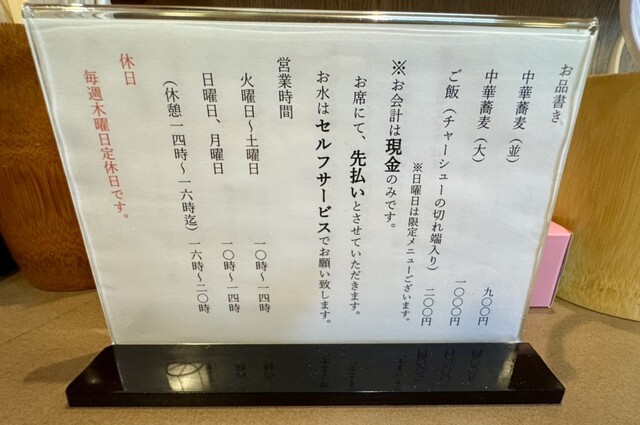 お品書き
中華蕎麦（並） 九〇〇円
中華蕎麦（大） 一〇〇〇円
ご飯（チャーシューの切れ端入り） 二〇〇円
※日曜日は限定メニューございます。
※お会計は現金のみです。
お席にて、先払いとさせていただきます。
お水はセルフサービスでお願い致します。
営業時間
火曜日〜土曜日 一〇時〜一四時
日曜日、月曜日 一〇時〜一四時
（休憩一四時〜一六時迄） 一六時〜二〇時
休日
毎週木曜日定休日です。